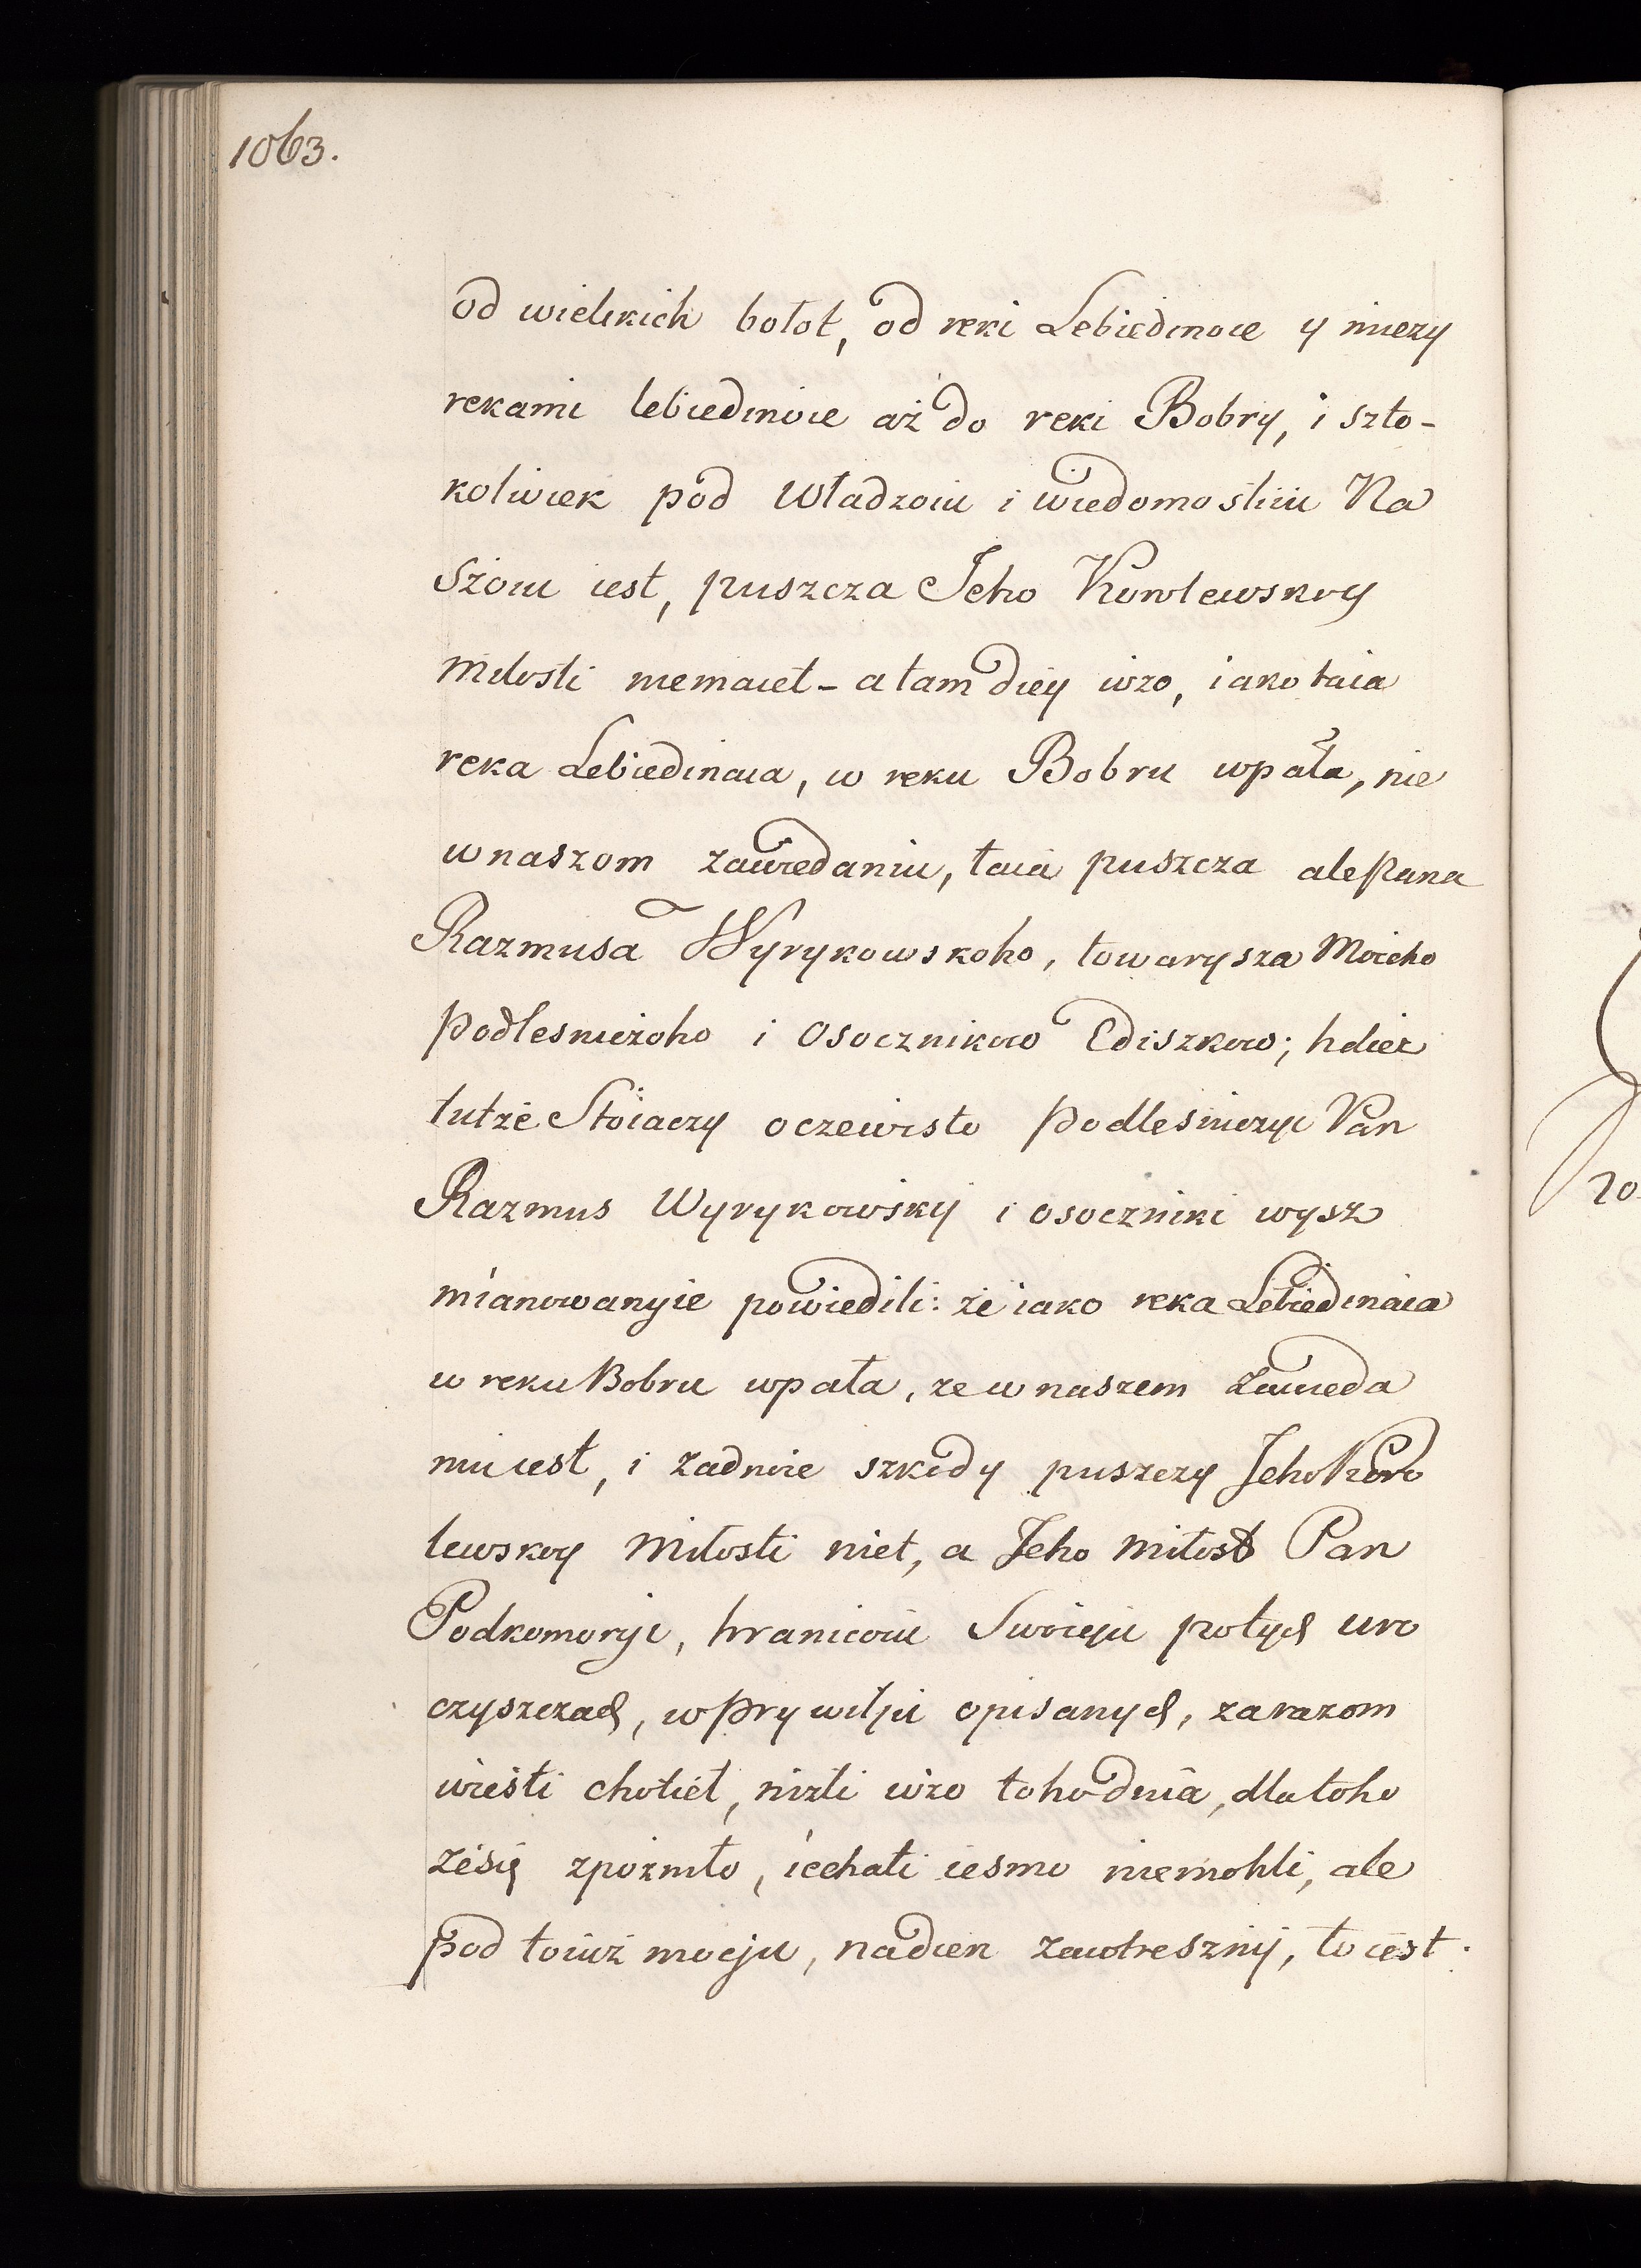 1063.
od wielikich bołot, od reki Lebiedinoie y miezy
rekami lebiedinoie aż do reki Bobry, i szto-
koliwiek pod Władzoiu i wiedomostiiu Na
szoiu iest, puszcza Jeho Korolewskoy
Miłosti niemaiet - a tam diey iużo, iako taia
reka Lebiedinaia, w reku Bobru wpała, nie
w naszom zawiedaniu, taia puszcza ale Pana
Razmusa Wyrykowskoho, towarysza Moieho
podlesniczoho i Osocznikow Ediszkow; hdież
tutże Stoiaczy oczewisto Podlesniczyi Pan
Razmus Wyrykowskij i osoczniki wysz
mianowanyie powiedili: że iako reka Lebiedinaia
w reku Bobru wpała, że w naszem Zawieda
niu iest, i żadnoie szkody puszczy Jeho Koro
lewskoy Miłosti niet, a Jeho Miłost Pan
Podkomoryi, hraniceiu Swoieju po tych uro
czyszczach, w Prywilju opisanych, zarazom
wiesti chotieł, niżli iużo toho dnia, dla toho
żesię zpoźniło, iechati iesmo niemohli, ale
pod toiuż mocju, nadień Zawtresznij, to iest.
20